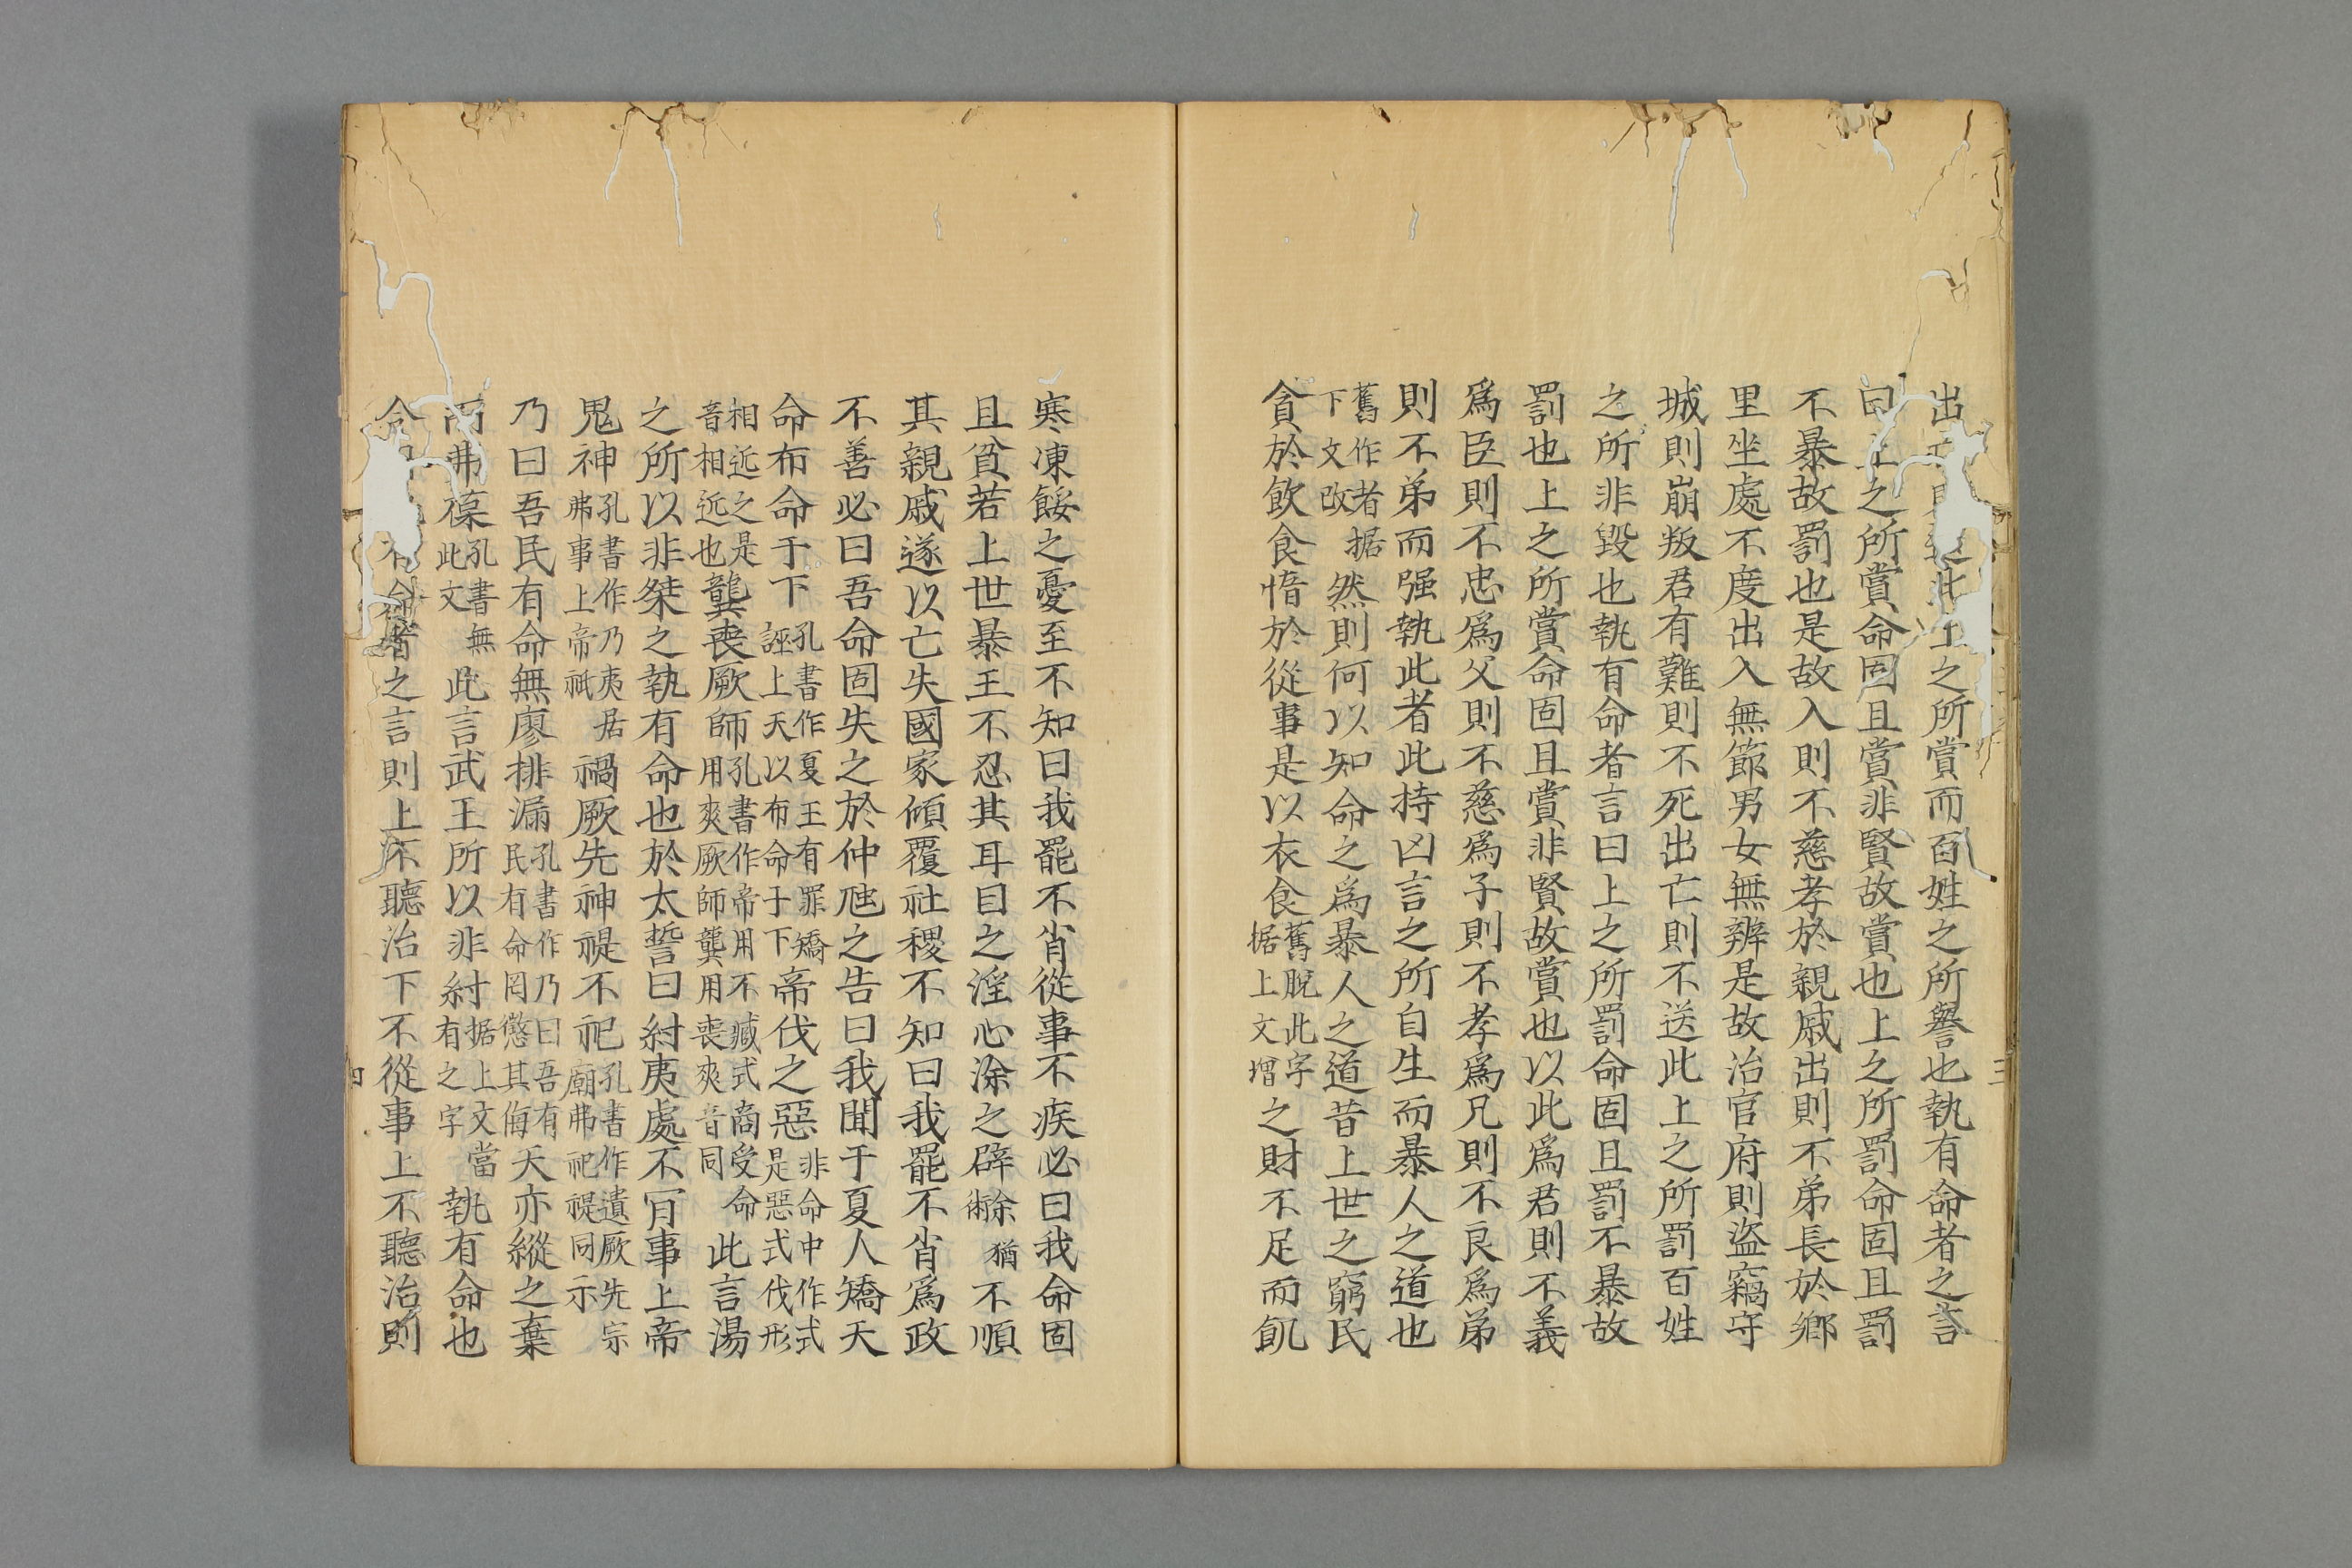 出之所賞而百姓之所譽也執有命者之言
曰上之所賞命固且賞非賢故賞也上之所罰命固且罰
不暴故罰也是故入則不慈孝於親戚出則不弟長於鄉
里坐處不度出入無節男女無辨是故治官府則盜竊守
城則崩叛君有難則不死出亡則不送此上之所罰百姓
之所非毀也執有命者言曰上之所罰命固且罰不暴故
罰也上之所賞命固且賞非賢故賞也以此爲君則不義
爲臣則不忠爲父則不慈爲子則不孝爲兄則不良爲弟
則不弟而强執此者此持凶言之所自生而暴人之道也
舊作者据下文改然則何以知命之爲暴人之道昔上世之窮民
貪於飲食惰於從事是以衣食舊脫此字据上文增之財不足而飢
三
寒凍餒之憂至不知曰我罷不肖從事不疾必曰我命固
且貧若上世暴王不忍其耳目之淫心涂之辟涂猶術不順
其親戚遂以亡失國家傾覆社稷不知曰我罷不肖爲政
不善必曰吾命固失之於仲虺之告曰我聞于夏人矯天
命布命于下孔書作夏王有罪矯誣上天以布命于下帝伐之惡非命中作式是惡式伐形
相近之是音相近也龔喪厥師孔書作帝用不臧式商受命用爽厥師龔用喪爽音同此言湯
之所以非桀之執有命也於太誓曰紂夷處不肎事上帝
鬼神孔書作乃夷居弗事上帝祇禍厥先神禔不祀孔書作遺厥先宗廟弗祀禔同示
乃曰吾民有命無廖排漏孔書作乃曰吾有民有命罔懲其侮天亦縱之棄
而弗葆孔書無此文此言武王所以非紂据上文當有之字執有命也
今者之言則上不聽治下不從事上不聽治則
四